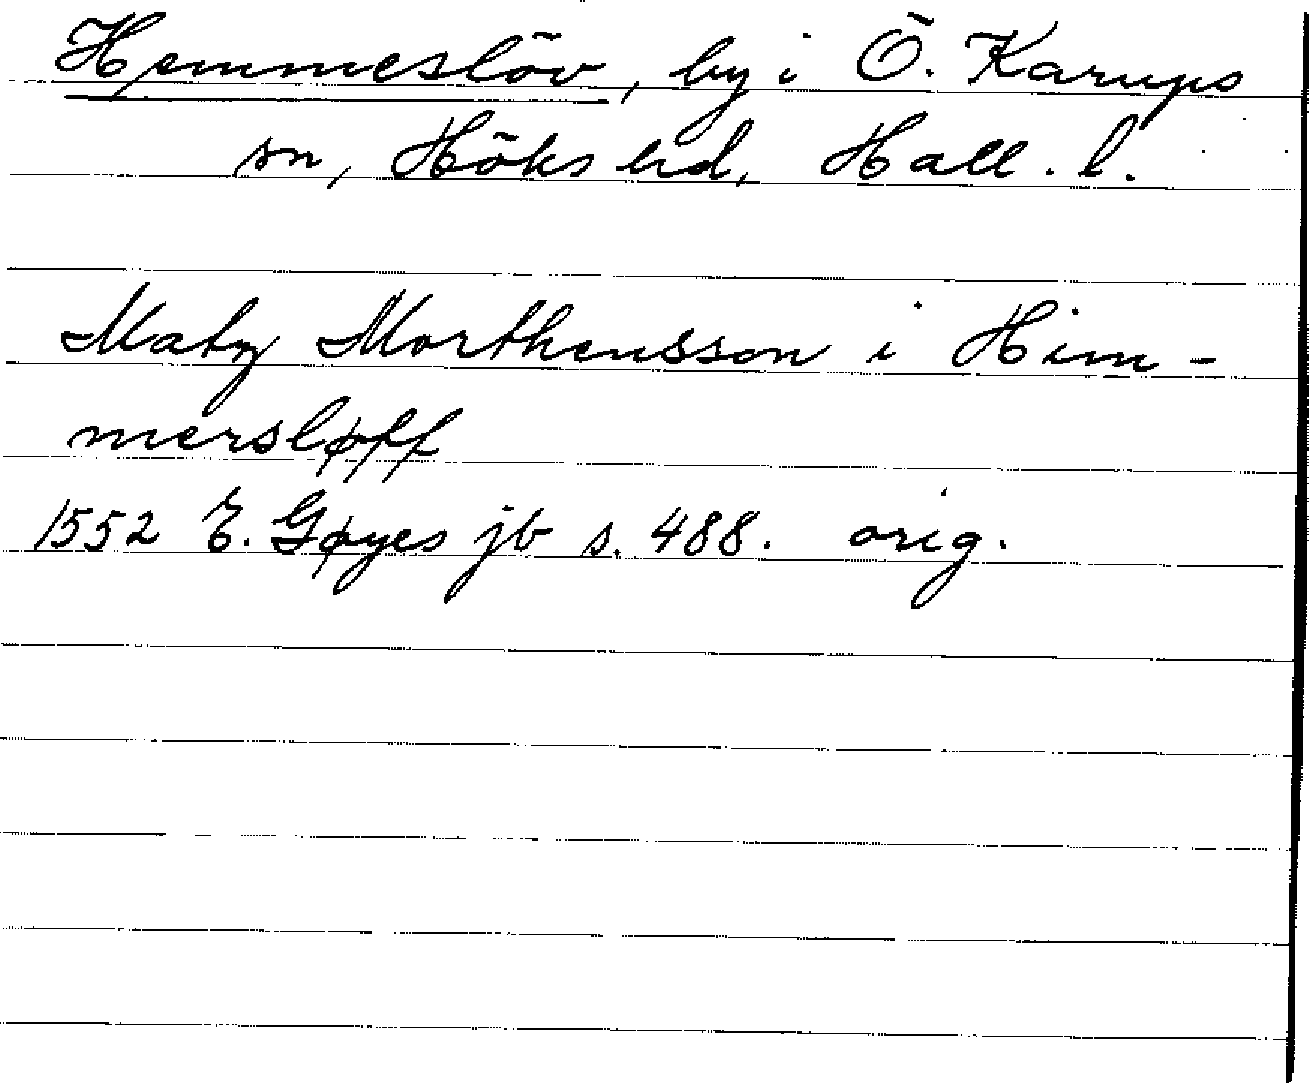 Hemmeslöv, by i Ö. Karups
sn, Höks hd, Hall. l.
Matz Morthensson i Him-
mersløff
1552 E. Gøyes jb s. 488. orig.